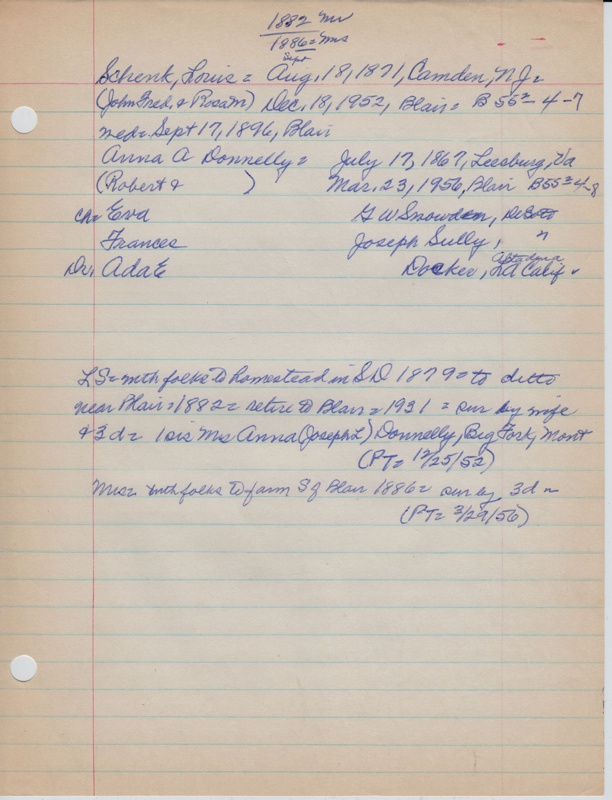 1882 Mr
1886 = Mrs
Sept
Schenk, Louis = Aug. 18, 1871, Camden, N.J. =
(John Fred, & Rosa M) Dec. 18, 1952, Blair = B 55² - 4 - 7
med = Sept 17, 1896, Blair
Anna A Donnelly = July 17, 1867, Leesburg, Va
(Robert & ) Mar. 23, 1956, Blair B55² 4-8
ch = Eva G W Snowden,
Frances Joseph Sully, "
Dr. Ada E Docker, Altadena LA Calif
LS = with folks to homestead in S D 1879 = to ditto
near Blair = 1882 = retire to Blair = 1931 = sur by wife
& 3 d = 1 sis Mrs Anna (Joseph L) Donnelly, Big Fork, Mont
(PT = 12/25/52)
Mrs = with folks to farm S of Blair 1886 = sur by 3 d =
(PT = 3/29/56)